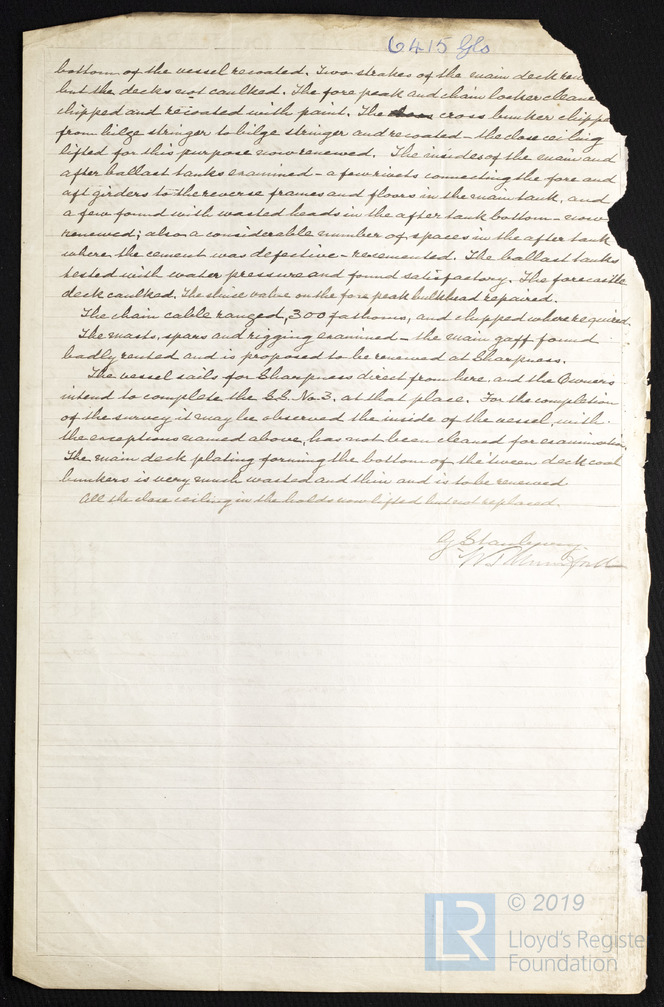 6415 Gls
bottom of the vessel recoated. Two strakes of the main deck
but the decks not caulked. The fore peak and chain locker cleane
chipped and recoated with paint. The cross bunker chippe
from bilge stringer to bilge stringer and recoated – the close ceiling
lifted for this purpose now renewed. The insides of the main and
after ballast tanks examined – a few rivets connecting the fore and
aft girders to the reverse frames and floors in the main tank, and
a few found with wasted heads in the after tank bottom – now
renewed; also a considerable number of spaces in the after tank
where the cement was defective – recemented. The ballast tanks
tested with water pressure and found satisfactory. The forecastle
deck caulked. The sluice valve on the fore peak bulkhead repaired.
The chain cable ranged, 300 fathoms, and chipped where required.
The masts, spars and rigging examined – the main gaff found
badly rusted and is proposed to be renewed at Sharpness.
The vessel sails for Sharpness direct from here, and the Owners
intend to complete the S.S. No. 3, at that place. For the completion
of the survey it may be observed the inside of the vessel, with
the exceptions named above, has not been cleaned for examination.
The main deck plating forming the bottom of the 'tween deck coal
bunkers is very much wasted and thin and is to be renewed
All the close ceiling in the holds now lifted but not replaced.
© 2019
LR
Lloyd's Registe
Foundation